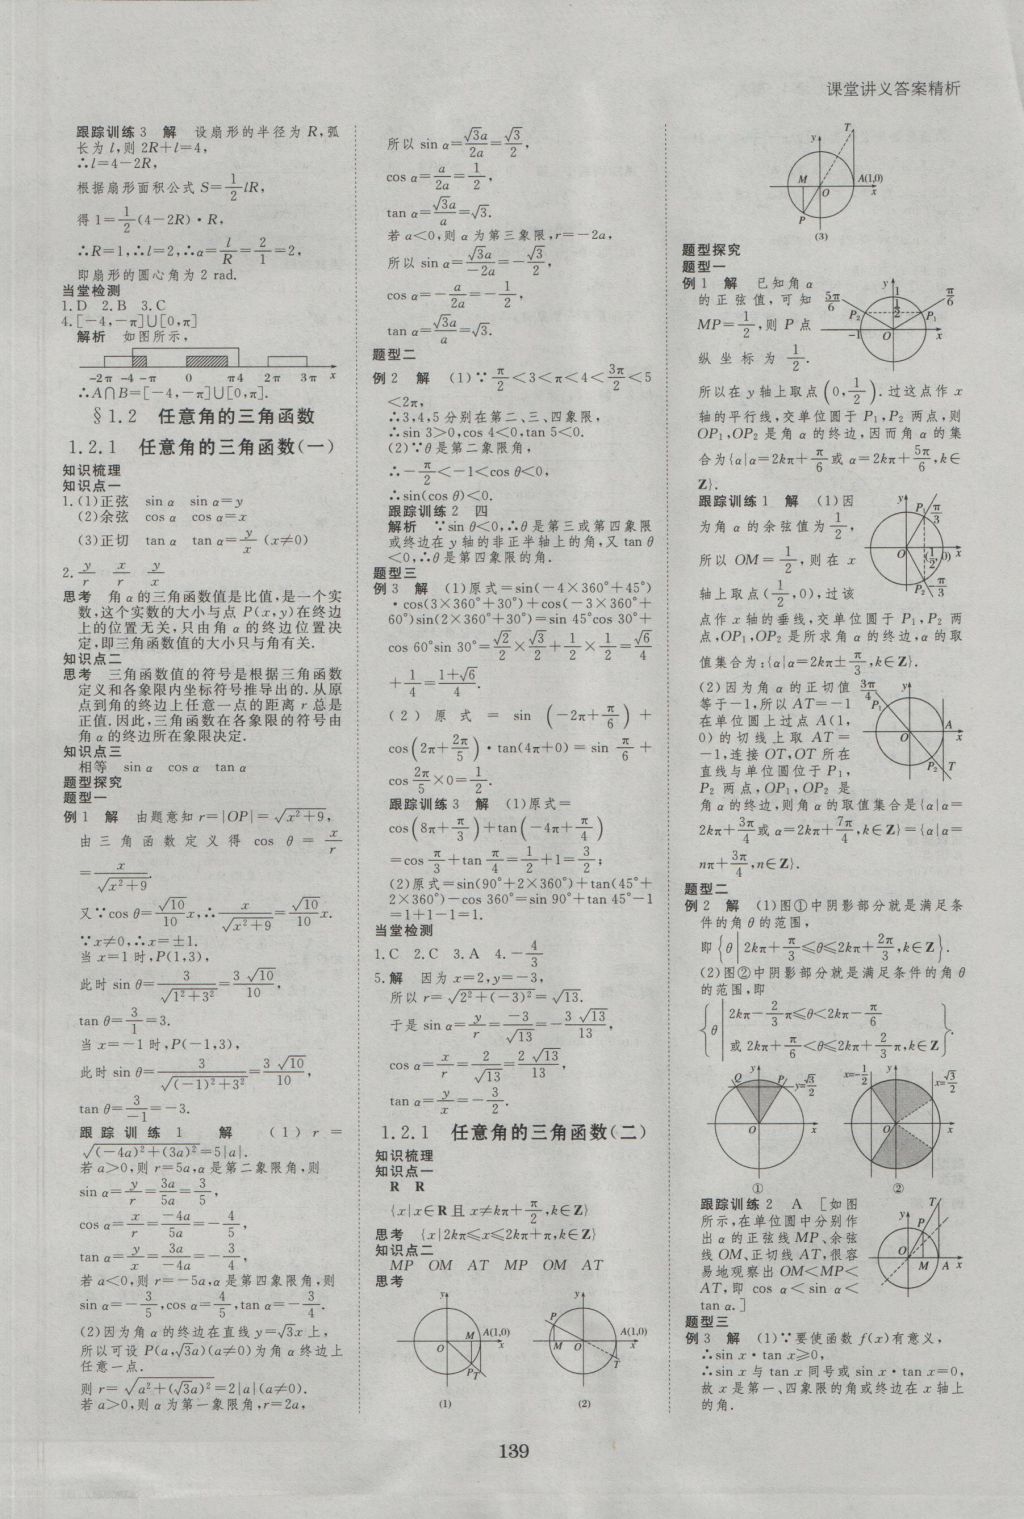 课堂讲义答案精析
跟踪训练3 解 设扇形的半径为 R,弧
长为 l,则 2R+l=4,
∴l=4-2R,
根据扇形面积公式 S=1/2 lR,
得 1=1/2(4-2R)·R,
∴R=1,∴l=2,∴α=l/R=2/1=2,
即扇形的圆心角为 2 rad.
当堂检测
1.D 2.B 3.C
4.[-4,-π]∪[0,π]
解析 如图所示,
-2π -4 -π 0 π4 2π 3π x
∴A∩B=[-4,-π]∪[0,π].
§1.2 任意角的三角函数
1.2.1 任意角的三角函数(一)
知识梳理
知识点一
1.(1)正弦 sin α sin α=y
(2)余弦 cos α cos α=x
(3)正切 tan α tan α=y/x (x≠0)
2. y/r x/r y/x
思考 角α的三角函数值是比值,是一个实
数,这个实数的大小与点 P(x,y)在终边
上的位置无关,只由角α的终边位置决
定,即三角函数值的大小只与角有关.
知识点二
思考 三角函数值的符号是根据三角函数
定义和各象限内坐标符号推导出的.从原
点到角的终边上任意一点的距离 r 总是
正值.因此,三角函数在各象限的符号由
角α的终边所在象限决定.
知识点三
相等 sin α cos α tan α
题型探究
题型一
例1 解 由题意知 r=|OP|=√(x²+9),
由三角函数定义得 cos θ=x/r
=x/√(x²+9).
又∵cos θ=√10/10 x,∴x/√(x²+9)=√10/10 x.
∵x≠0,∴x=±1.
当 x=1 时,P(1,3),
此时 sin θ=3/√(1²+3²)=3√10/10,
tan θ=3/1=3.
当 x=-1 时,P(-1,3),
此时 sin θ=3/√((-1)²+3²)=3√10/10,
tan θ=3/-1=-3.
跟踪训练1 解 (1)r=
√((-4a)²+(3a)²)=5|a|.
若 a>0,则 r=5a,α是第二象限角,则
sin α=y/r=3a/5a=3/5,
cos α=x/r=-4a/5a=-4/5,
tan α=y/x=3a/-4a=-3/4,
若 a<0,则 r=-5a,α是第四象限角,则
sin α=-3/5,cos α=4/5,tan α=-3/4.
(2)因为角α的终边在直线 y=√3x 上,
所以可设 P(a,√3a)(a≠0)为角α终边上
任意一点.
则 r=√(a²+(√3a)²)=2|a|(a≠0).
若 a>0,则α为第一象限角,r=2a,
所以 sin α=√3a/2a=√3/2,
cos α=a/2a=1/2,
tan α=√3a/a=√3.
若 a<0,则α为第三象限,r=-2a,
所以 sin α=√3a/-2a=-√3/2,
cos α=-a/2a=-1/2,
tan α=√3a/a=√3.
题型二
例2 解 (1)∵π/2<3<π<4<3π/2<5
<2π,
∴3,4,5分别在第二、三、四象限,
∴sin 3>0,cos 4<0,tan 5<0.
(2)∵θ是第二象限角,
∴-π/2<-1<cos θ<0,
∴sin(cos θ)<0.
跟踪训练2 四
解析 ∵sin θ<0,∴θ是第三或第四象限
或终边在 y 轴的非正半轴上的角,又 tan θ
<0,∴θ是第四象限的角.
题型三
例3 解 (1)原式=sin(-4×360°+45°)
·cos(3×360°+30°)+cos(-3×360°+
60°)sin(2×360°+30°)=sin 45°cos 30°+
cos 60°sin 30°=√2/2×√3/2+1/2×1/2=√6/4
+1/4=(1+√6)/4.
(2)原式=sin(-2π+π/6)+
cos(2π+2π/5)·tan(4π+0)=sin π/6+
cos 2π/5×0=1/2.
跟踪训练3 解 (1)原式=
cos(8π+π/3)+tan(-4π+π/4)
=cos π/3+tan π/4=1/2+1=3/2;
(2)原式=sin(90°+2×360°)+tan(45°+
2×360°)-cos 360°=sin 90°+tan 45°-1
=1+1-1=1.
当堂检测
1.C 2.C 3.A 4.-4/3
5.解 因为 x=2,y=-3,
所以 r=√(2²+(-3)²)=√13.
于是 sin α=y/r=-3/√13=-3√13/13,
cos α=x/r=2/√13=2√13/13,
tan α=y/x=-3/2.
1.2.1 任意角的三角函数(二)
知识梳理
知识点一
R R
{x|x∈R且 x≠kπ+π/2,k∈Z}
思考 {x|2kπ≤x≤2kπ+π,k∈Z}
知识点二
MP OM AT MP OM AT
思考
y M A(1,0) O x P T
(1)
y P A(1,0) M O x T
(2)
y T M A(1,0) O x P
(3)
题型探究
题型一
例1 解 已知角α
的正弦值,可知
MP=1/2,则 P 点
纵坐标为1/2.
y 1 5π/6 1/2 π/6 P₂ P₁ -1 O x
所以在 y 轴上取点(0,1/2).过这点作 x
轴的平行线,交单位圆于 P₁,P₂ 两点,则
OP₁,OP₂ 是角α的终边,因而角α的集
合为{α|α=2kπ+π/6或α=2kπ+5π/6,k∈
Z}.
跟踪训练1 解 (1)因
为角α的余弦值为1/2,
所以 OM=1/2,则在 x
轴上取点(1/2,0),过该
y P₁ π/3 O (1/2,0) x P₂ -π/3
点作 x 轴的垂线,交单位圆于 P₁,P₂ 两
点,OP₁,OP₂ 是所求角α的终边,α的取
值集合为:{α|α=2kπ±π/3,k∈Z}.
(2)因为角α的正切值
等于-1,所以 AT=-1
在单位圆上过点 A(1,
0)的切线上取 AT=
-1,连接 OT,OT 所在
直线与单位圆位于 P₁,
P₂ 两点,OP₁,OP₂ 是
3π/4 y P₁ A O x P₂ T
角α的终边,则角α的取值集合是{α|α=
2kπ+3π/4或α=2kπ+7π/4,k∈Z}={α|α=
nπ+3π/4,n∈Z}.
题型二
例2 解 (1)图①中阴影部分就是满足条
件的角θ的范围,
即{θ|2kπ+π/3≤θ≤2kπ+2π/3,k∈Z}.
(2)图②中阴影部分就是满足条件的角θ
的范围,即
{θ|2kπ-2/3π≤θ<2kπ-π/6
或 2kπ+π/6<θ≤2kπ+2/3π,k∈Z}.
Q y P y=√3/2 O x
①
x=-1/2 y x=√3/2 O x
②
跟踪训练2 A [如图
所示,在单位圆中分别作
出α的正弦线 MP、余弦
线 OM、正切线 AT,很容
易地观察出 OM<MP<
AT,即 cos α<sin α<
tan α.]
y T P O M A x
题型三
例3 解 (1)∵要使函数 f(x)有意义,
∴sin x·tan x≥0,
∴sin x 与 tan x 同号或 sin x·tan x=0,
故 x 是第一、四象限的角或终边在 x 轴上
的角.
139